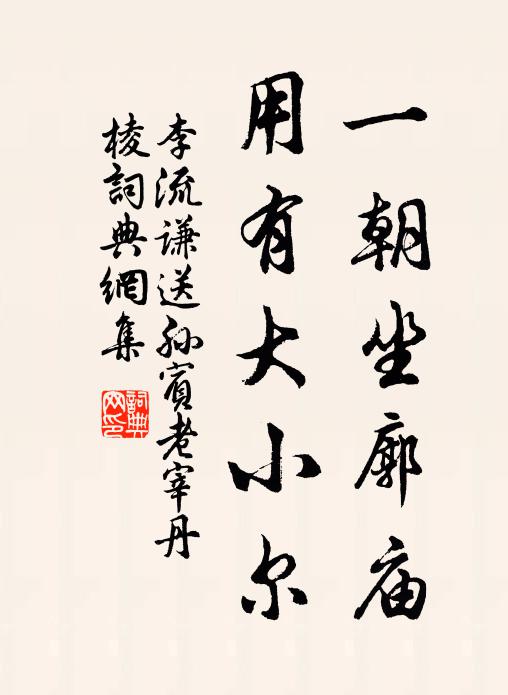 一朝坐廓庙
用有大小尔
李流谦送孙宾老宰丹
棱詞典網集
詞典
网印